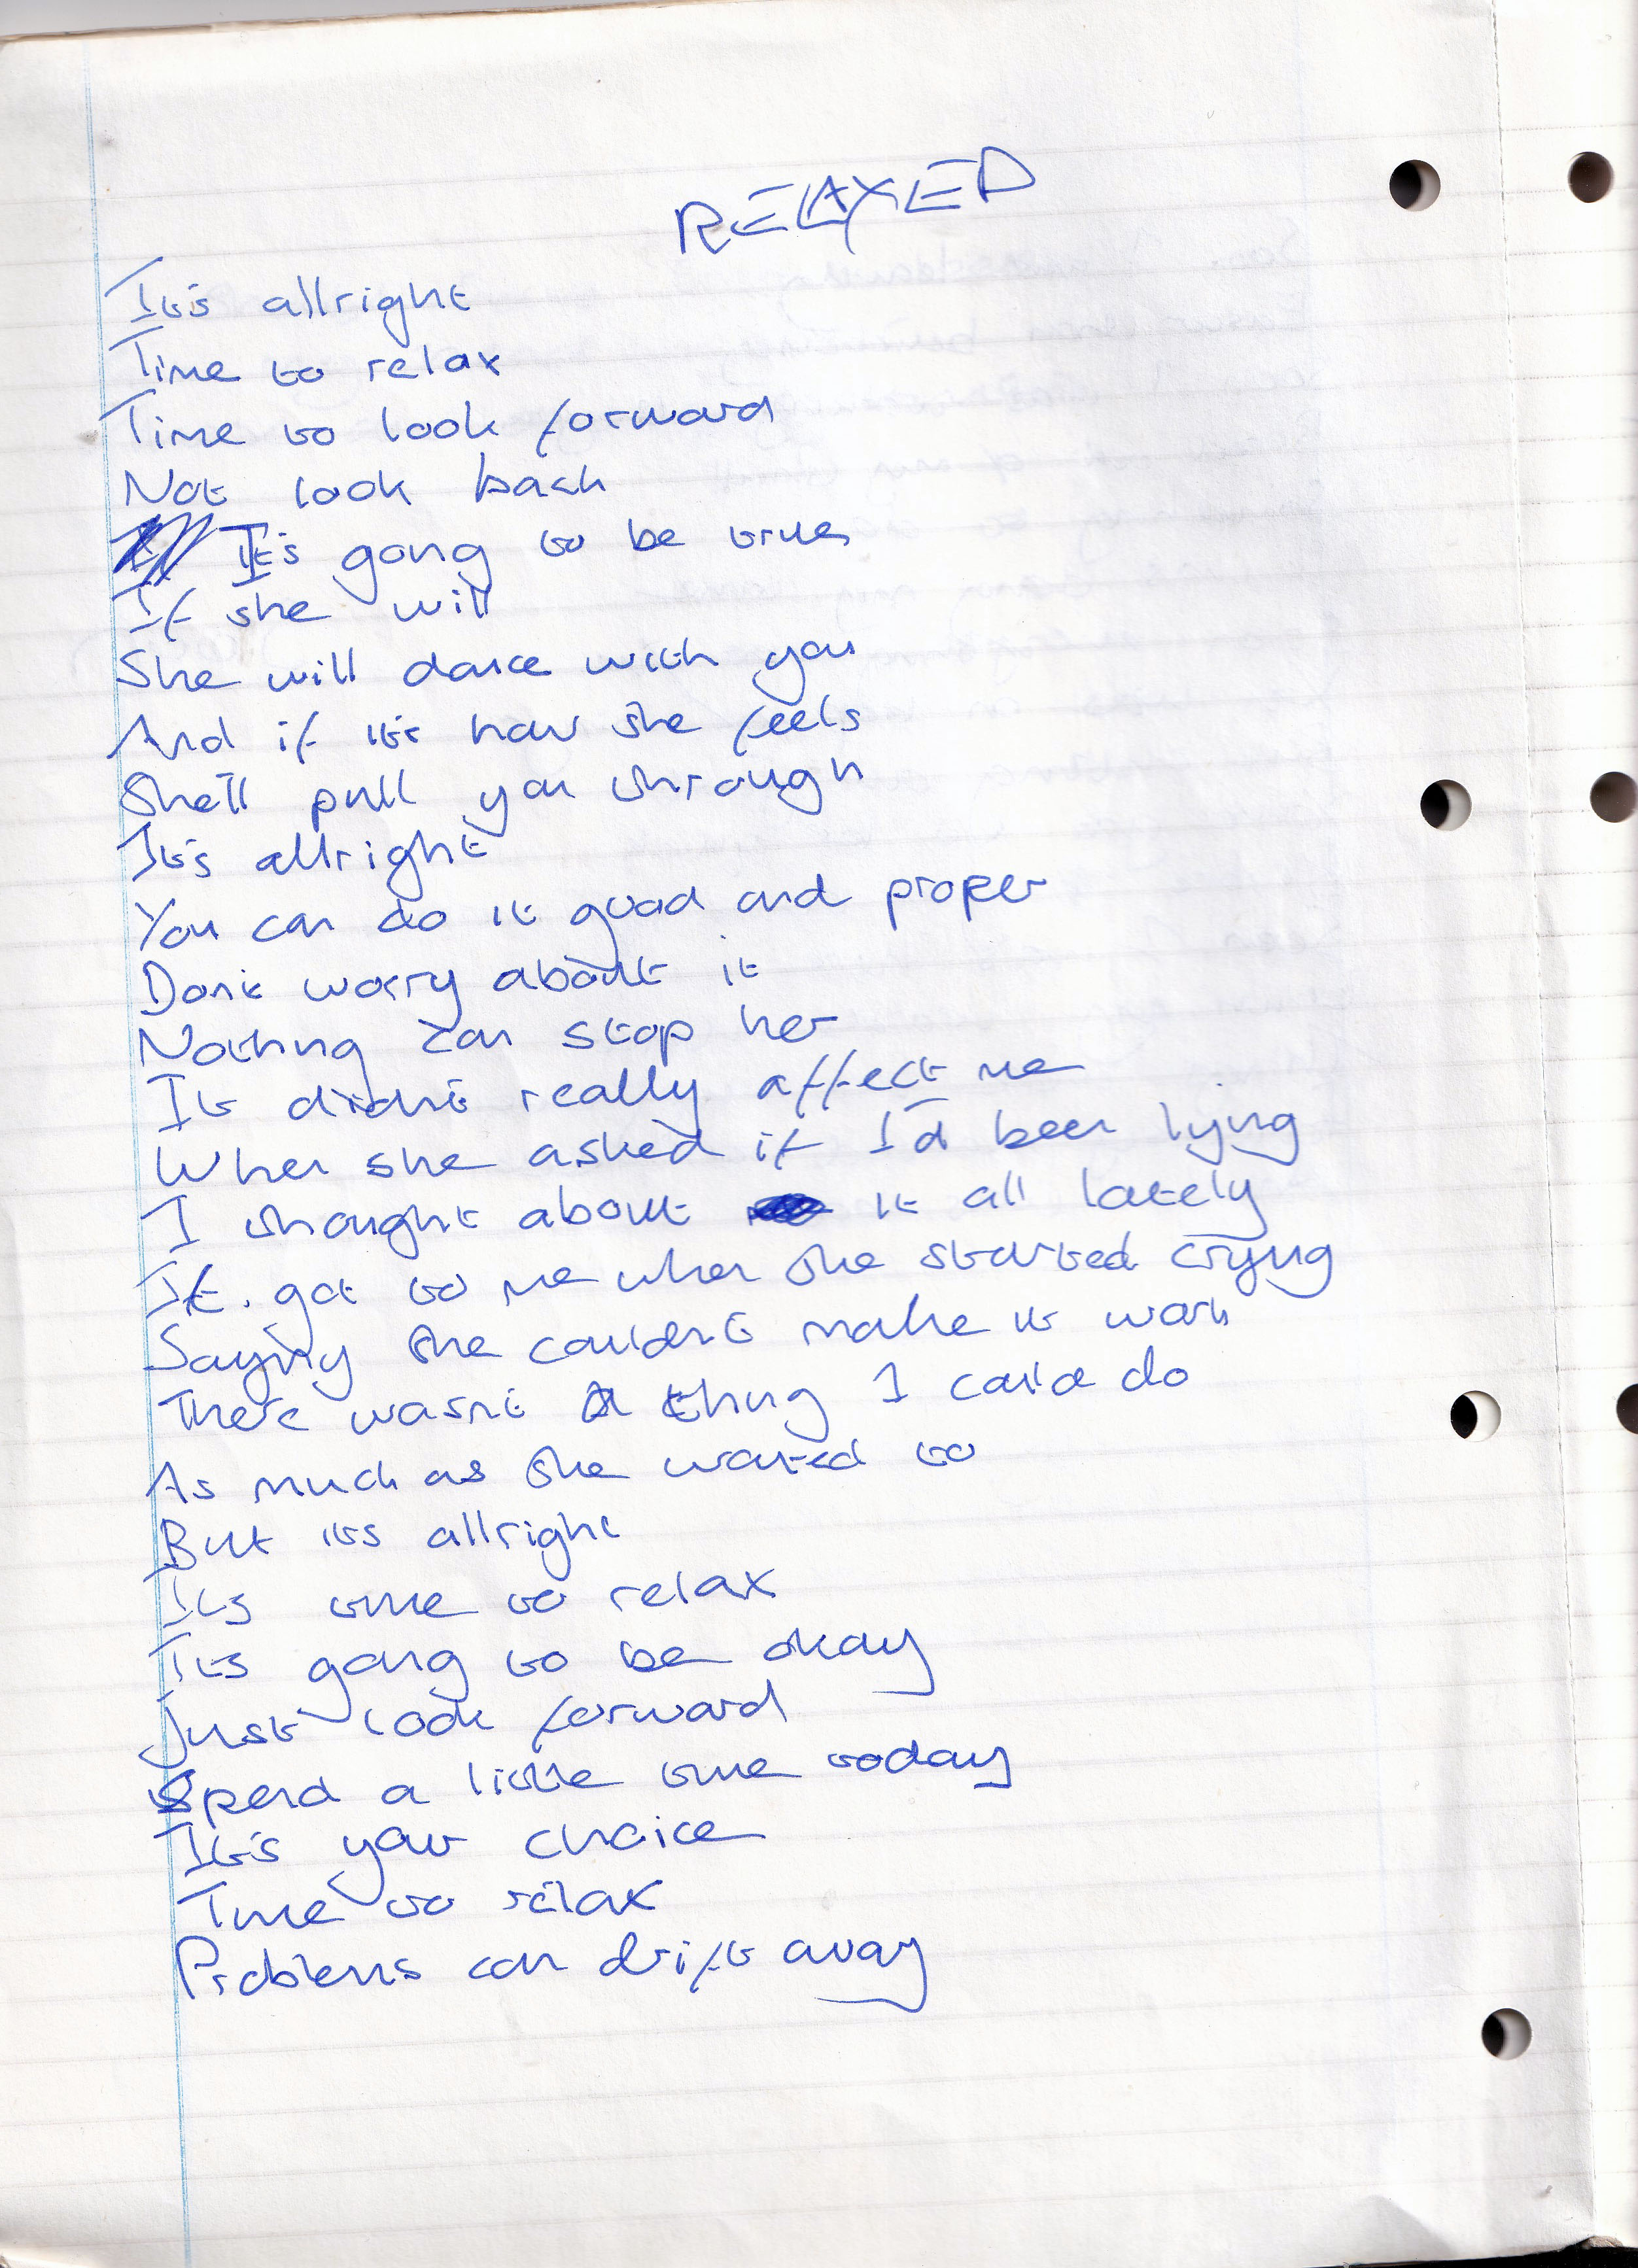 RELAXED
It's allright
Time to relax
Time to look forward
Not look back
It's going to be true
If she will
She will dance with you
And if it's how she feels
She'll pull you through
It's allright
You can do it good and proper
Don't worry about it
Nothing can stop her
It didn't really affect me
When she asked if I'd been lying
I thought about it all lately
It got to me when she started crying
Saying she couldn't make it work
There wasn't a thing I could do
As much as she wanted to
But its allright
Its time to relax
Its going to be okay
Just look forward
Spend a little time today
It's your choice
Time to relax
Problems can drift away